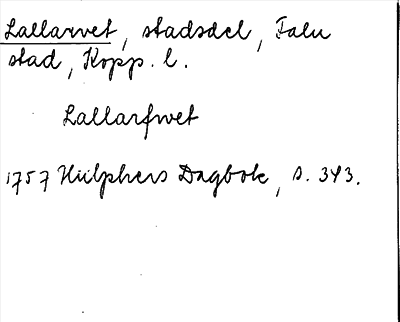 Lallarvet, stadsdel, Falu
stad, Kopp. l.
Lallarfwet
1757 Hülphers Dagbok, s. 343.